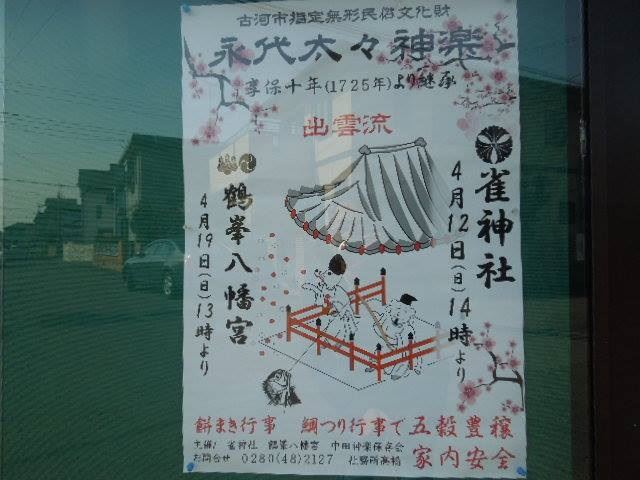 古河市指定無形民俗文化財
永代太々神楽
享保十年(1725年)より継承
出雲流
雀神社
4月12日(日)14時より
鶴峯八幡宮
4月19日(日)13時より
餅まき行事 鯛つり行事で 五穀豊穣
家内安全
主催/ 雀神社 鶴峯八幡宮 中田神楽保存会
お問合せ 0280(48)2127 社務所高橋